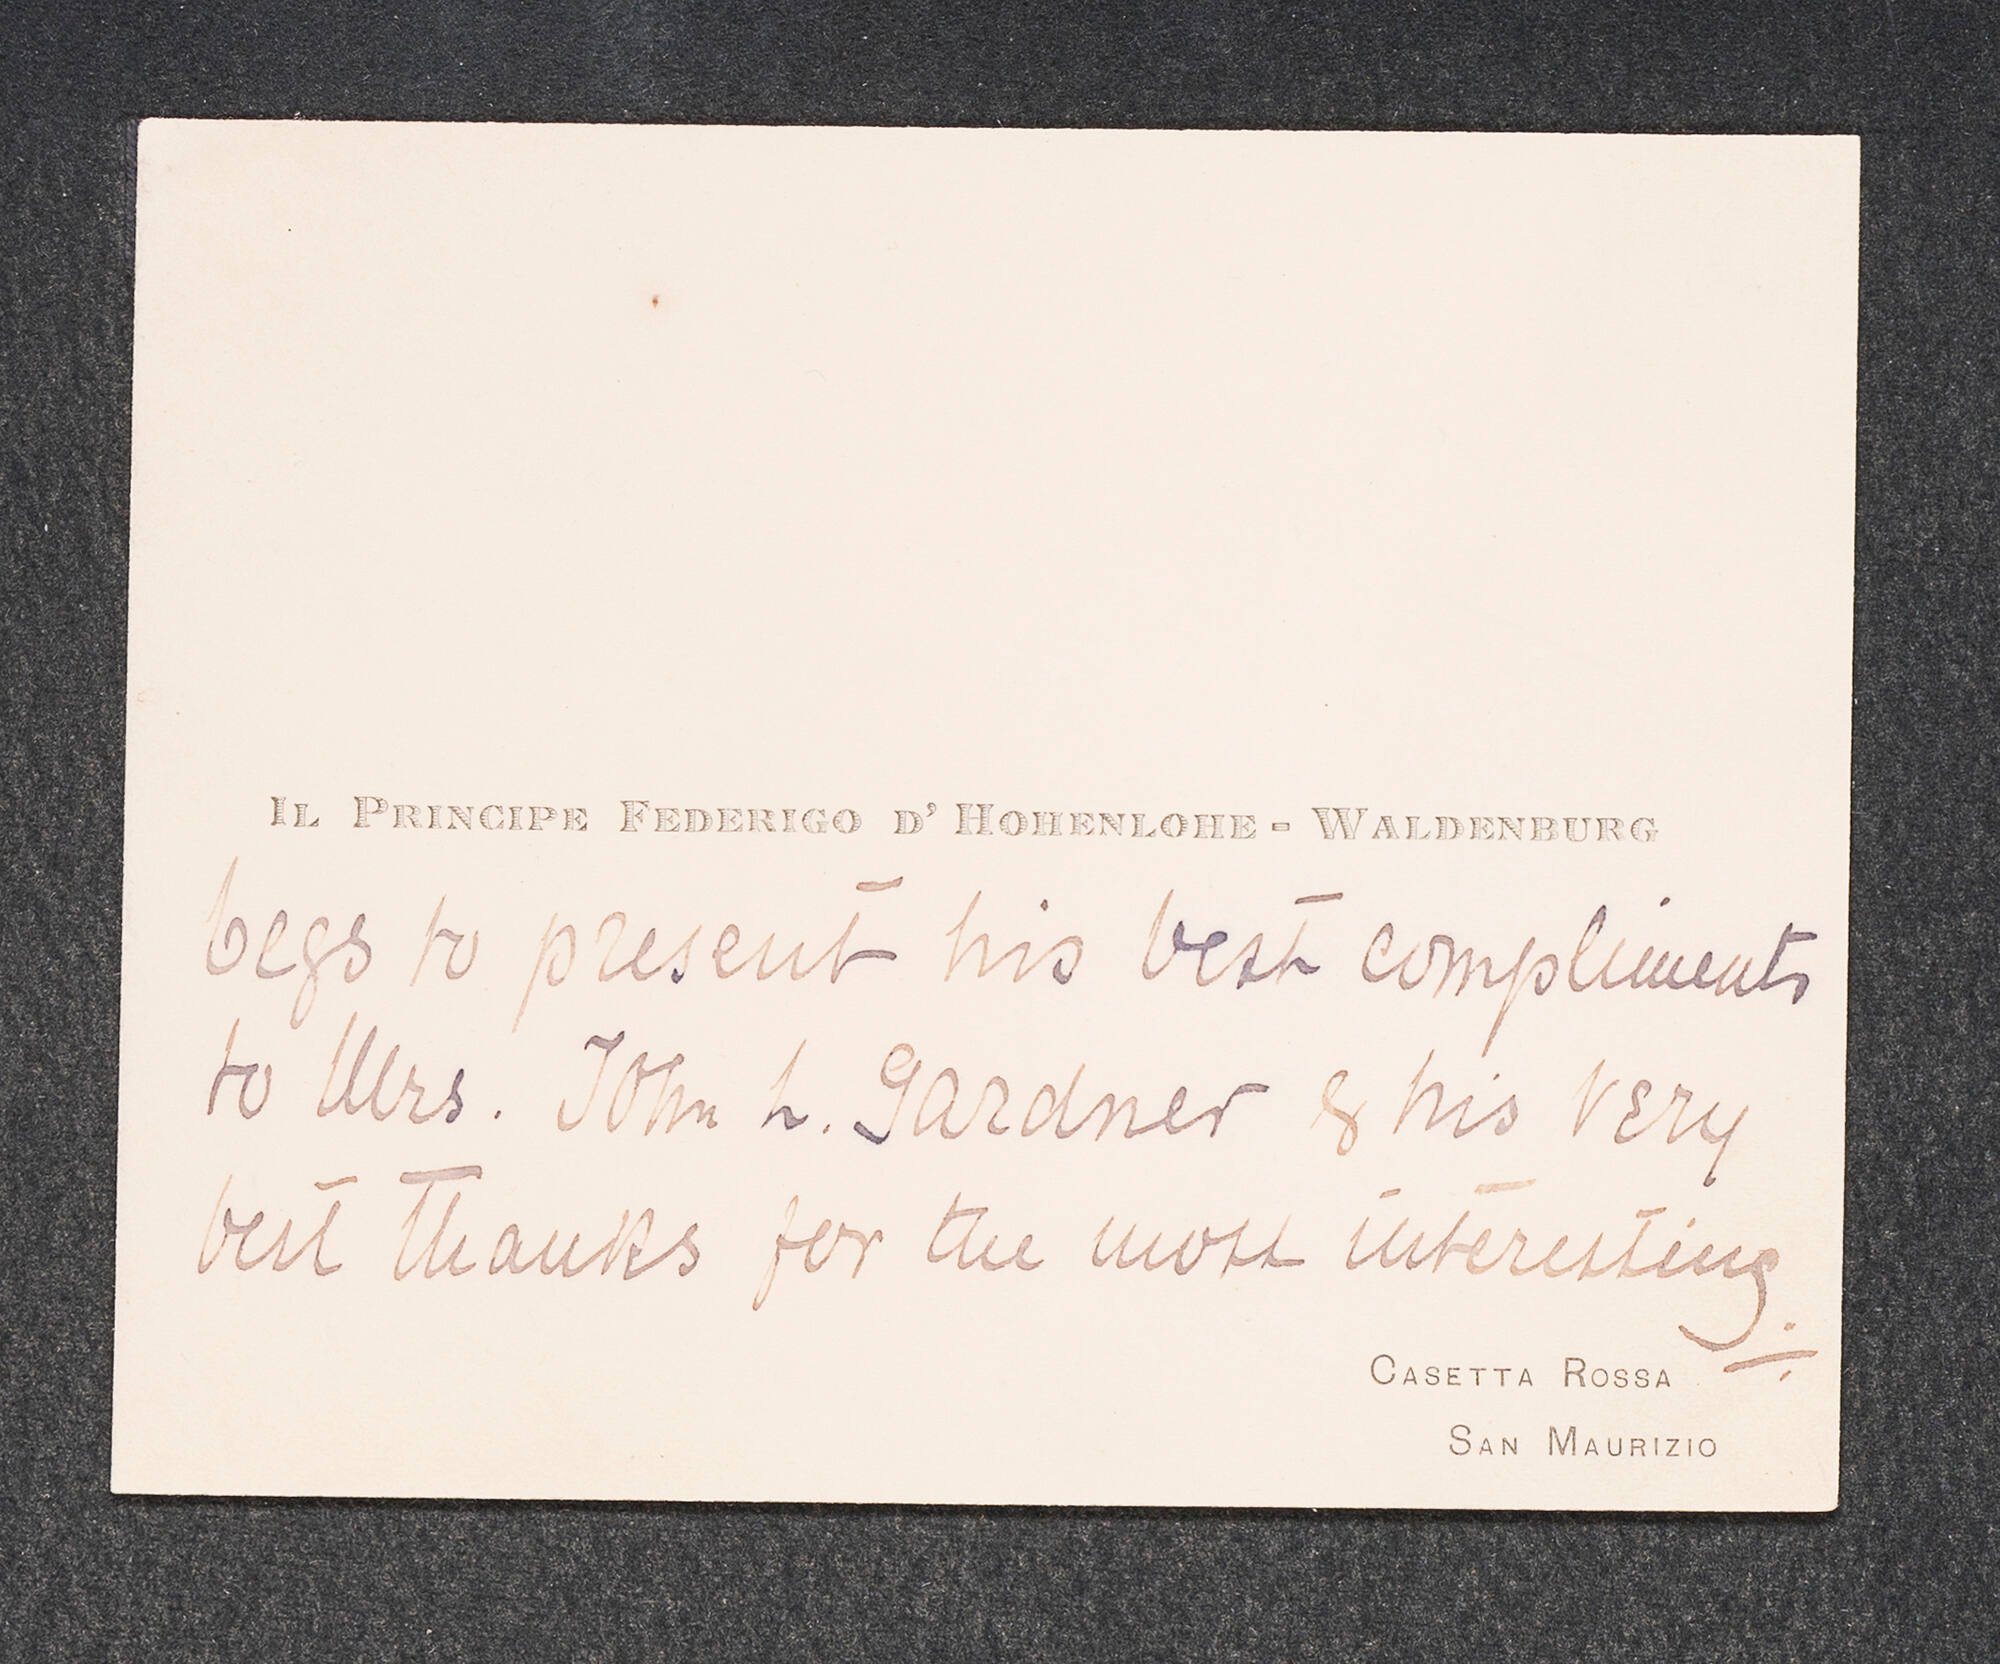 IL PRINCIPE FEDERIGO D' HOHENLOHE - WALDENBURG
begs to present his best compliments
to Mrs. John L. Gardner & his very
best thanks for the most interesting.
CASETTA ROSSA
SAN MAURIZIO